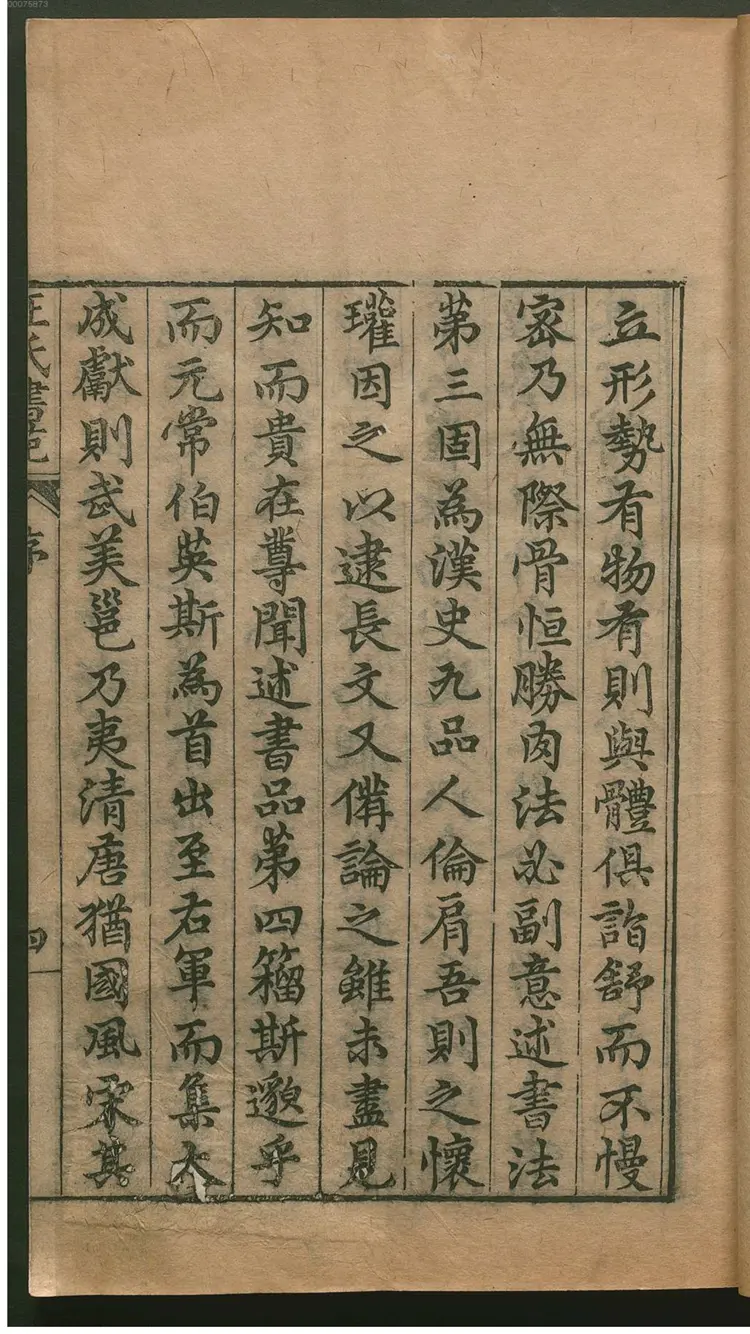 00075873
立形勢有物有則與體俱詣舒而不慢
密乃無際骨恒勝肉法必副意述書法
第三固為漢史九品人倫肩吾則之懷
瓘因之以逮長文又備論之雖未盡見
知而貴在尊聞述書品第四籀斯邈乎
而元常伯英斯為首出至右軍而集大
成獻則武美邕乃夷清唐猶國風宋其
氏書
序
四